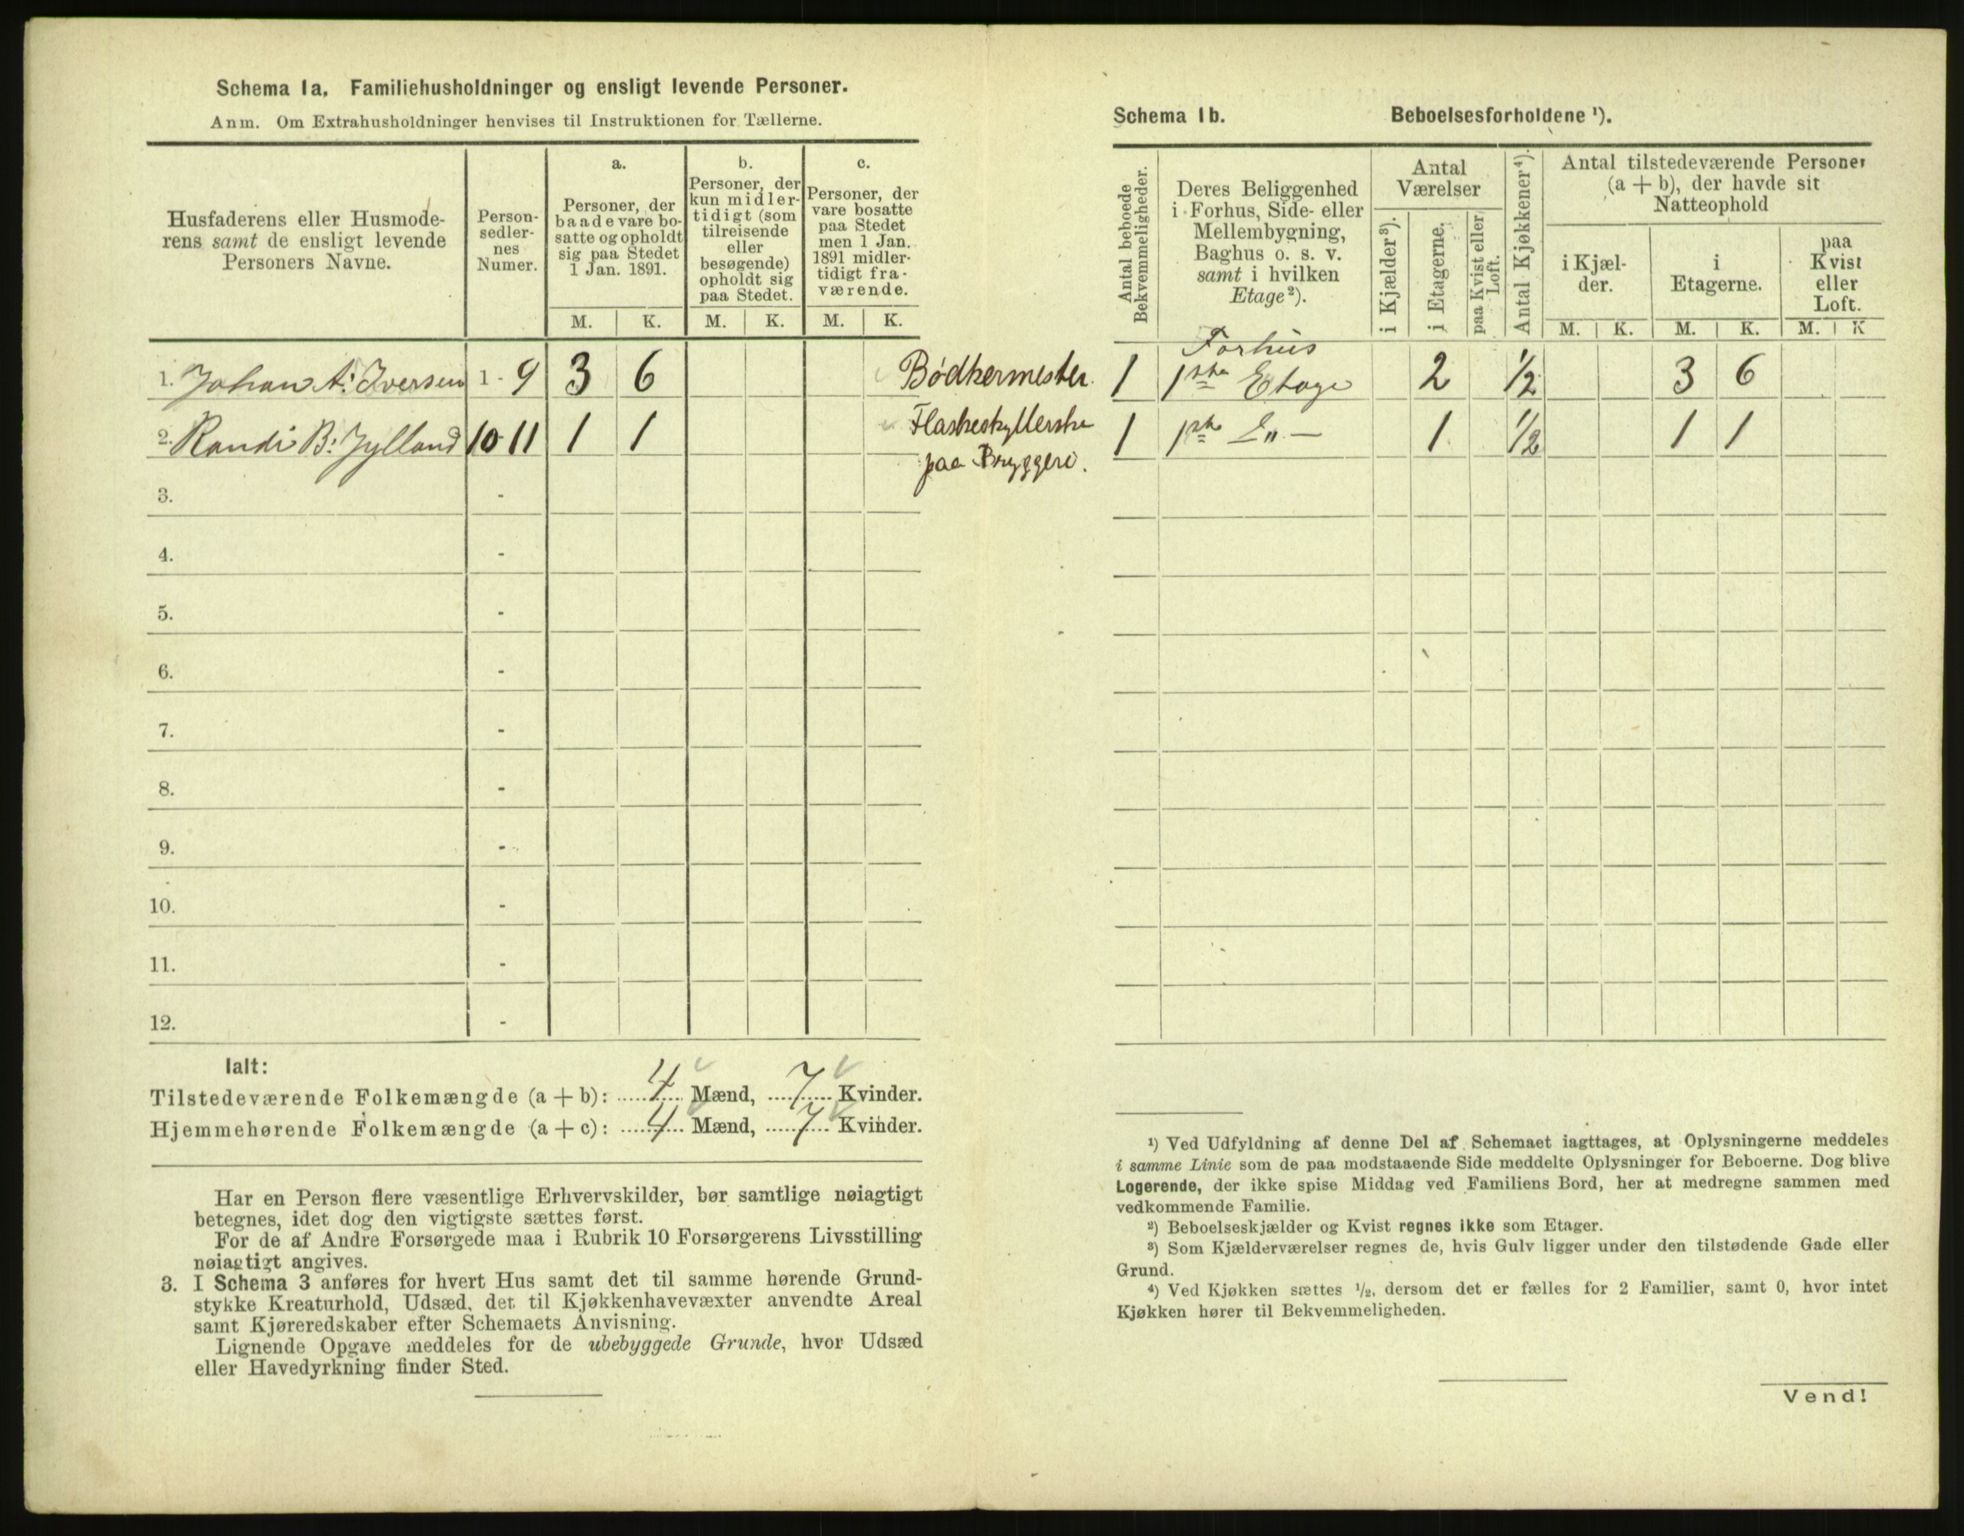 Schema 1a. Familiehusholdninger og ensligt levende Personer.
Anm. Om Extrahusholdninger henvises til Instruktionen for Tællerne.
Husfaderens eller Husmode-
rens samt de ensligt levende
Personers Navne.
Person-
sedler-
nes
Numer.
a.
Personer, der
baade vare bo-
satte og opholdt
sig paa Stedet
1 Jan. 1891.
b.
Personer, der
kun midler-
tidigt (som
tilreisende
eller
besøgende)
opholdt sig
paa Stedet.
c.
Personer, der
vare bosatte
paa Stedet
men 1 Jan.
1891 midler-
tidigt fra-
værende.
M. K. M. K. M. K.
1. Johan A: Iversen 1 - 9 3 6 Bødkermester.
2. Randi B: Jylland 10-11 1 1 Flaskeskyllerske
paa Bryggeri.
3. -
4. -
5. -
6. -
7. -
8. -
9. -
10. -
11. -
12. -
Ialt:
Tilstedeværende Folkemængde (a + b): 4 Mænd, 7 Kvinder.
Hjemmehørende Folkemængde (a + c): 4 Mænd, 7 Kvinder.
Har en Person flere væsentlige Erhvervskilder, bør samtlige nøiagtigt
betegnes, idet dog den vigtigste sættes først.
For de af Andre Forsørgede maa i Rubrik 10 Forsørgerens Livsstilling
nøiagtigt angives.
3. I Schema 3 anføres for hvert Hus samt det til samme hørende Grund-
stykke Kreaturhold, Udsæd, det til Kjøkkenhavevæxter anvendte Areal
samt Kjøreredskaber efter Schemaets Anvisning.
Lignende Opgave meddeles for de ubebyggede Grunde, hvor Udsæd
eller Havedyrkning finder Sted.
Schema 1b. Beboelsesforholdene ¹).
Antal beboede
Bekvemmeligheder.
Deres Beliggenhed
i Forhus, Side- eller
Mellembygning,
Baghus o. s. v.
samt i hvilken
Etage²).
Antal
Værelser
i Kjælder³).
i Etagerne.
paa Kvist eller
Loft.
Antal Kjøkkener⁴).
Antal tilstedeværende Personer
(a + b), der havde sit
Natteophold
i Kjæl-
der.
i
Etagerne.
paa
Kvist
eller
Loft.
M. K. M. K. M. K
Forhus
1 1ste Etage 2 1/2 3 6
1 1ste E„ — 1 1/2 1 1
¹) Ved Udfyldning af denne Del af Schemaet iagttages, at Oplysningerne meddeles
i samme Linie som de paa modstaaende Side meddelte Oplysninger for Beboerne. Dog blive
Logerende, der ikke spise Middag ved Familiens Bord, her at medregne sammen med
vedkommende Familie.
²) Beboelseskjælder og Kvist regnes ikke som Etager.
³) Som Kjælderværelser regnes de, hvis Gulv ligger under den tilstødende Gade eller
Grund.
⁴) Ved Kjøkken sættes ½, dersom det er fælles for 2 Familier, samt 0, hvor intet
Kjøkken hører til Bekvemmeligheden.
Vend!